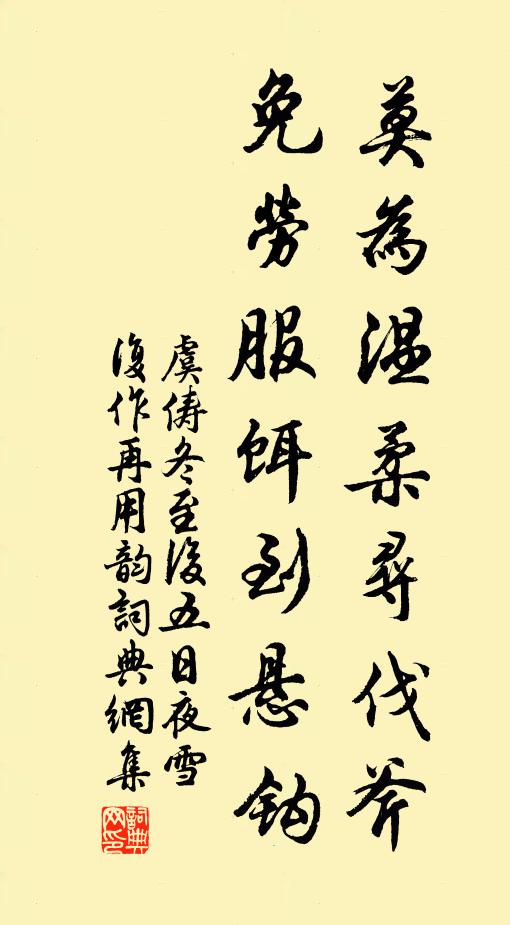 莫為溫柔尋伐斧
免勞服餌到懸鉤
虞儔冬至後五日夜雪
復作再用韵詞典網集
詞典網印